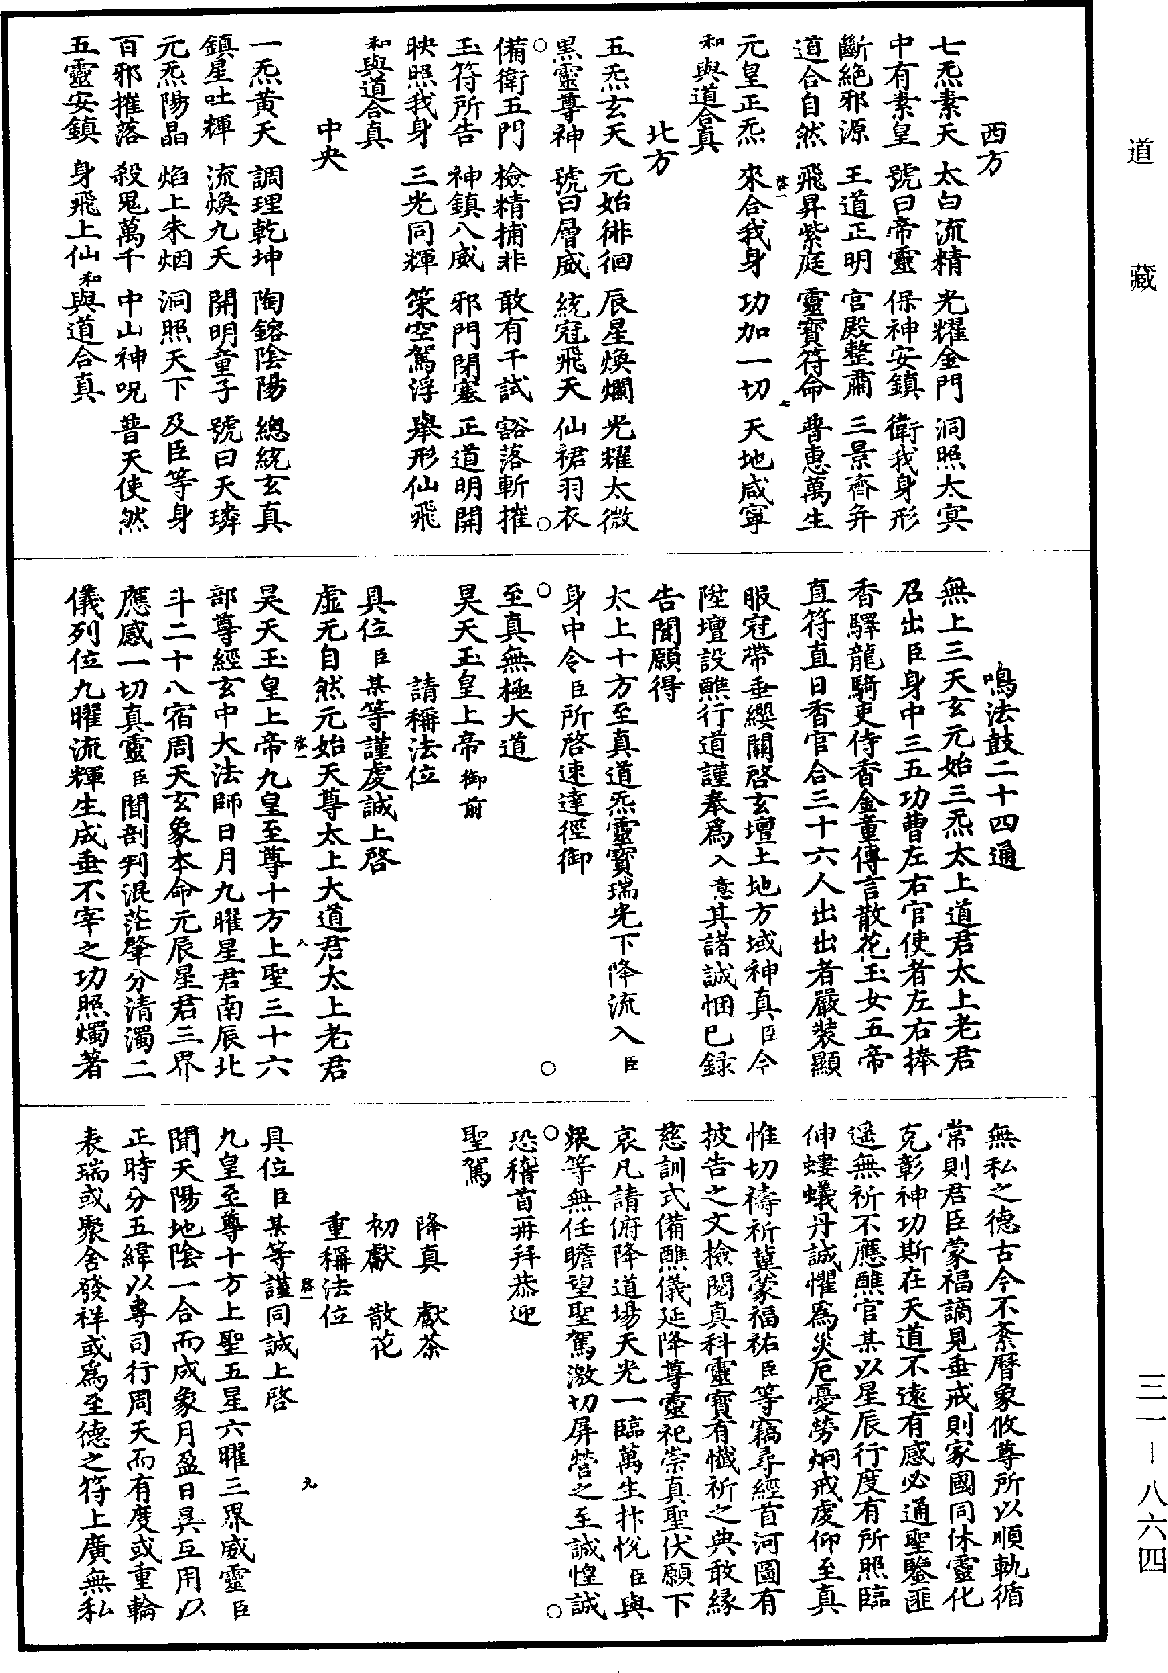 道藏
西方
七炁素天　太白流精　光耀金門　洞照太冥
中有素皇　號曰帝靈　保神安鎮　衛我身形
斷絕邪源　王道正明　宮殿整肅　三景齊并
道合自然　飛昇紫庭　靈寶符命　普惠萬生
元皇正炁　來合我身　功加一切　天地咸寧
和與道合真
北方
五炁玄天　元始徘徊　辰星煥爛　光耀太微
黑靈尊神　號曰層威　統冠飛天　仙裙羽衣
備衛五門　檢精捕非　敢有干試　豁落斬摧
玉符所告　神鎮八威　邪門閉塞　正道明開
映照我身　三光同輝　策空駕浮　舉形仙飛
和與道合真
中央
一炁黃天　調理乾坤　陶鎔陰陽　總統玄真
鎮星吐輝　流煥九天　開明童子　號曰天璘
元炁陽晶　焰上朱烟　洞照天下　及臣等身
百邪摧落　殺鬼萬千　中山神呪　普天使然
五靈安鎮　身飛上仙　和與道合真
鳴法鼓二十四通
無上三天玄元始三炁太上道君太上老君
召出臣身中三五功曹左右官使者左右捧
香驛龍騎吏侍香金童傳言散花玉女五帝
直符直日香官合三十六人出出者嚴裝顯
服冠帶垂纓關啓玄壇土地方域神真臣今
陞壇設醮行道謹奉爲入意其諸誠悃已録
告聞願得
太上十方至真道炁靈寶瑞光下降流入臣
身中令臣所啓速達徑御
至真無極大道
昊天玉皇上帝御前
請稱法位
具位臣某等謹虔誠上啓
虛无自然元始天尊太上大道君太上老君
昊天玉皇上帝九皇至尊十方上聖三十六
部尊經玄中大法師日月九曜星君南辰北
斗二十八宿周天玄象本命元辰星君三界
應感一切真靈臣聞剖判混茫肇分清濁二
儀列位九曜流輝生成垂不宰之功照燭著
無私之德古今不紊曆象攸尊所以順軌循
常則君臣蒙福謫見垂戒則家國同休靈化
克彰神功斯在天道不遠有感必通聖鑒匪
遥無祈不應醮官某以星辰行度有所照臨
伸螻蟻丹誠懼爲災厄憂勞炯戒虔仰至真
惟切禱祈冀蒙福祐臣等竊尋經首河圖有
披告之文檢閱真科靈寶有懺祈之典敢緣
慈訓式備醮儀延降尊靈祀崇真聖伏願下
哀凡請俯降道場天光一臨萬生抃悅臣與
衆等無任瞻望聖駕激切屏營之至誠惶誠
恐稽首再拜恭迎
聖駕
降真　獻茶
初獻　散花
重稱法位
具位臣某等謹同誠上啓
九皇至尊十方上聖五星六曜三界威靈臣
聞天陽地陰一合而成象月盈日昃互用以
正時分五緯以專司行周天而有度或重輪
表瑞或聚舍發祥或爲至德之符上廣無私
三一－八六四